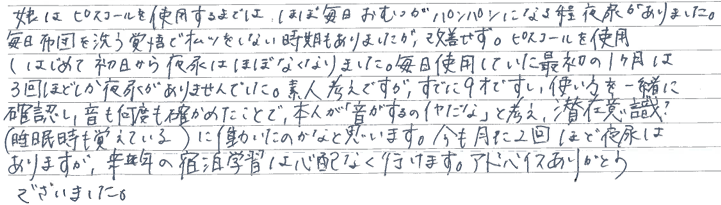 娘は ピスコールを使用するまでは、ほぼ毎日 おむつがパンパンになる程 夜尿がありました。
毎日布団を洗う覚悟でオムツをしない時期もありましたが、改善せず。ピスコールを使用
しはじめて 初日から 夜尿は ほぼなくなりました。毎日使用していた最初の1ヶ月は
3回ほどしか夜尿がありませんでした。素人考えですが、すでに9才ですし、使い方を一緒に
確認し、音も何度も確かめたことで、本人が「音がするのイヤだな」と考え、潜在意識?
(睡眠時も覚えている)に働いたのかなと思います。今も月に2回 ほど夜尿は
ありますが、半年の宿泊学習は心配なく行けます。アドバイスありがとう
ございました。